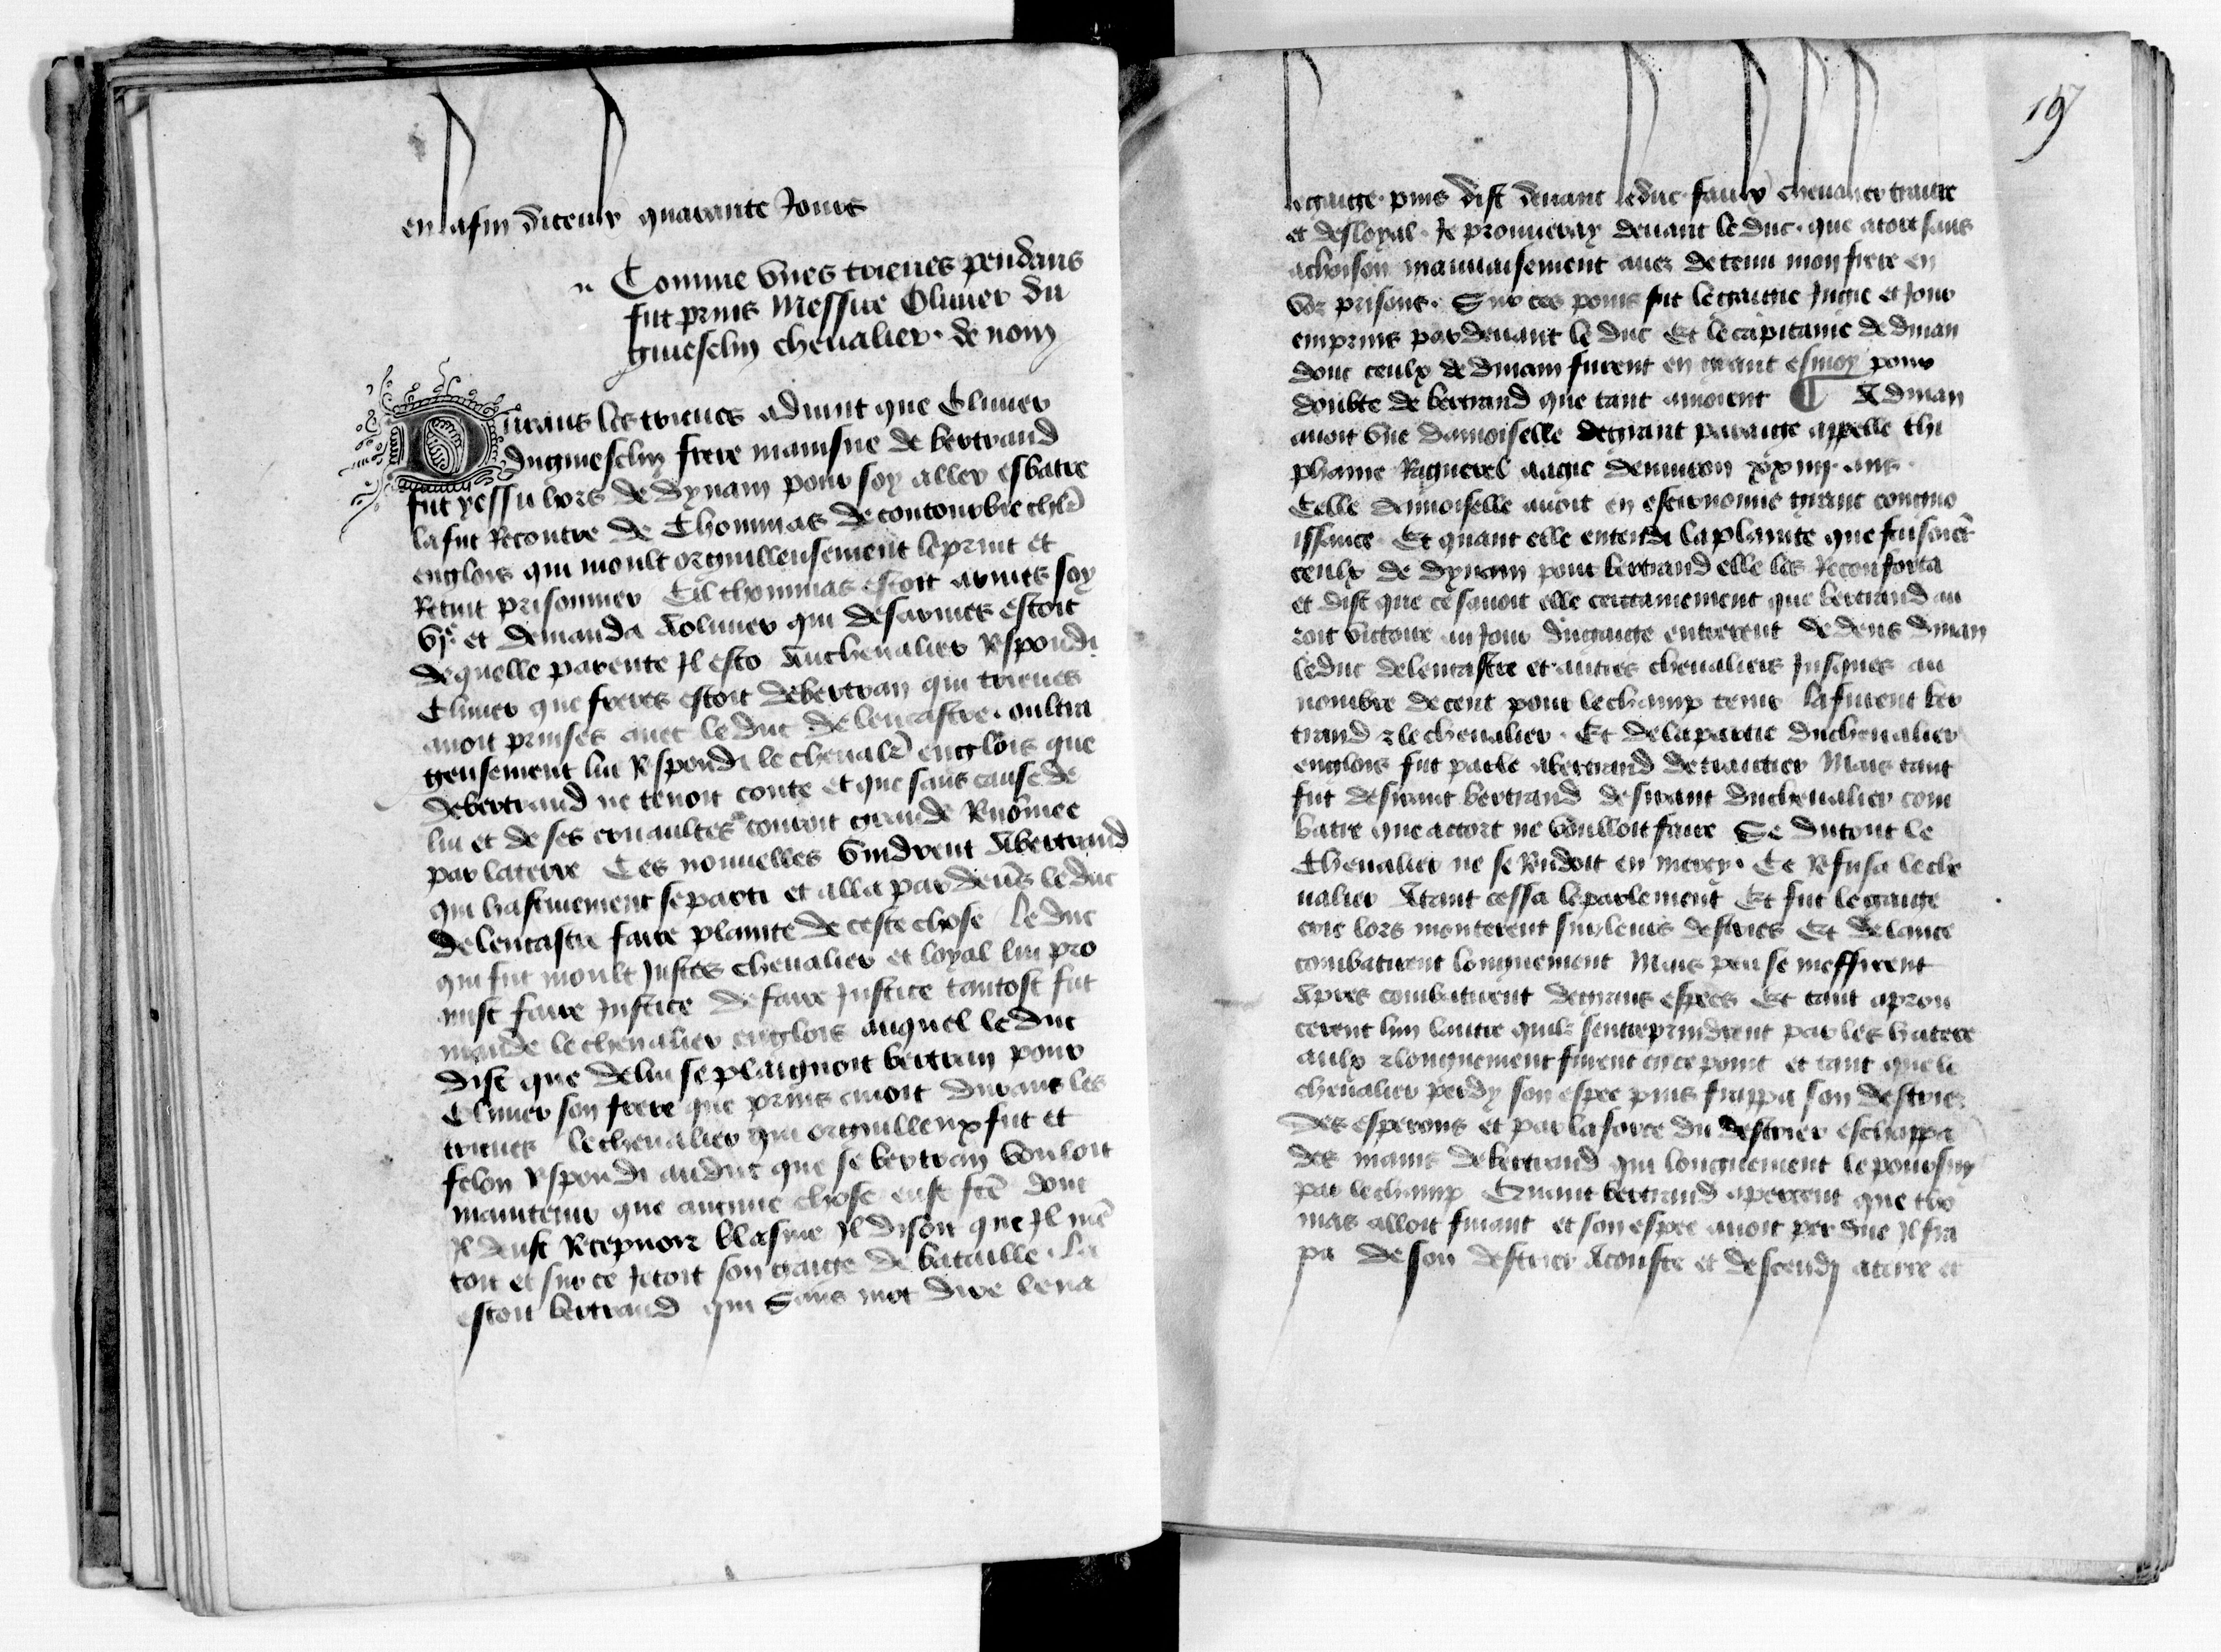 en lafin diceulx quarante Jours
Comme vnes trieues pendans
fut prins Messire Oliuier du
guiesclin cheualier de nom
Durans les trieues aduint que Oliuier
duguiesclin frere mainsne de bertrand
fut yessu hors de dynam pour soy aller esbatre
la fut Recontre de Thommas de contourbie chlr
englois qui moult orguilleusement leprint et
Retint prisonnier Cil thommas estoit armes soy
vje et demanda Aoliuier qui desarmes estoit
dequelle parente Jl esto Auchevalier Respondi
Oliuier que freres estoit debertran qui trieues
auoit prinses auec leduc de lencastre oultra
geusement lui Respondi le cheualr englois que
debertrand ne tenoit conte et que sans cause de
lui et de ses cruaultes couroit grande Renomee
par laterre Ces nouuelles vindrent Abertrand
qui hastiuement separti et alla par deuers leduc
de lencastre faire plainte de ceste chose Le duc
qui fut moult Justes cheualier et loyal lui pro
mist faire Justice de faire Justice tantost fut
mande le cheualier englois auquel leduc
dist que delui se plaignoit bertran pour
Oliuier son frere que prins auoit durans les
trieues lecheualier qui orguilleux fut et
felon Respondi auduc que se bertran vouloit
maintenir que aucune chose eust fce dont
Jl deust Recepuoir blasme Jl disoit que Jl men
toit et sur ce Jetoit son gaige de bataille La
estoit bertrand qui Sans mot dire leua
19
legaige puis dist deuant leduc faulx cheualier traitre
et desloyal Je prouueray deuant le duc que atort sans
achoison mauuaisement auez detenu mon frere en
voz prisons Sur ces poins fut legaige Jugie et Jour
emprins par deuant le duc Et le capitaine de dinan
dont ceulx de dinam furent en grant esmoy pour
doubte de bertrand que tant amoient Adinan
auoit vne damoiselle degrant parage appelle thi
phanie Raguenel aagie denuiron xxiiij ans
Celle damoiselle auoit en estronomie grant congno
issance Et quant elle entendi laplainte que faisoiet
ceulx de dynam pour bertrand elle les Reconforta
et dist que ce sauoit elle certainement que bertrand au
roit victoire au Jour dugaige entrerent de dens dinan
leduc delencastre et autres cheualiers Jusques au
nombre decent pour lechamp tenir Lafurent ber
trand & le cheualier Et delapartie ducheualier
englois fut parle abertrand detraictier Mais tant
fut desirant bertrand desirant ducheualier com
batre que accort ne voulloit faire Se dutout le
Cheualier ne se Rendoit en mercy Ce Refusa leche
ualier Atant cessa leparlement Et fut legaige
crie lors monterent surleurs destriers Et delance
combatirent longuement Mais peu se meffirent
Apres combatirent degrans espees Et tant aprou
cerent lun lautre quilz sentreprindrent par les hatere
aulx & longuement furent ence point et tant que le
cheualier perdy son espee puis frappa son destrier
des esperons et par laforce du destrier eschappa
des mains debertrand qui longuement lepoursuy
par lechamp Quant bertrand aperceut que tho
mas alloit fuiant et son espee auoit perdue Jl fra
pa de son destrier Acouste et descendj aterre et